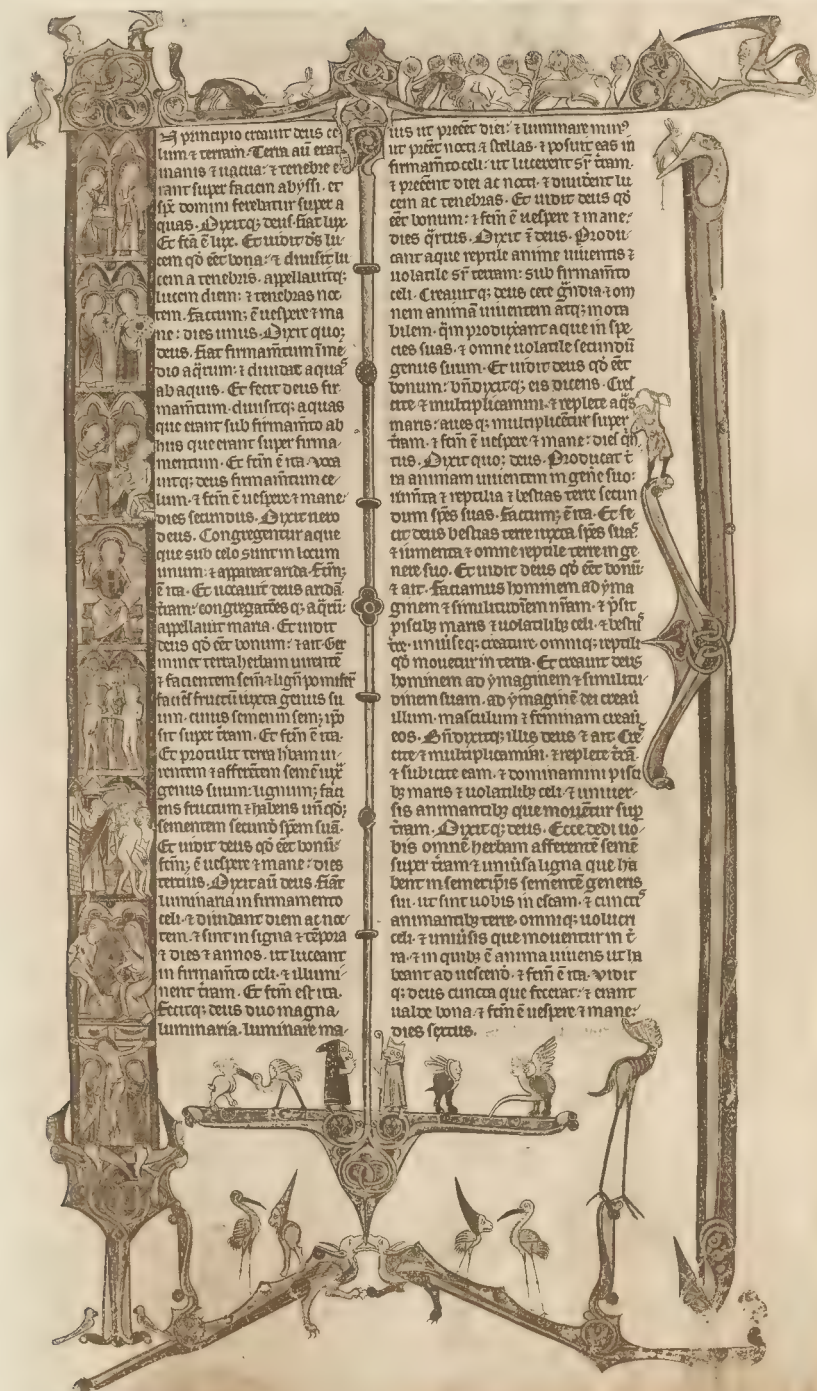 N principio creauit deus ce
lum ⁊ terram. Terra aũ erat
inanis ⁊ uacua: ⁊ tenebre e
rant super faciem abyssi. et
sp̃c domini ferebatur super a
quas. Dixitq; deus. fiat lux.
Et fc̃a ẽ lux. Et uidit dс̃ lu
cem q̃o eẽt bona: ⁊ diuisit lu
cem a tenebris. appellauitq;
lucem diem: ⁊ tenebras noc
tem. factum; ẽ uespere ⁊ ma
ne: dies unus. Dixit quo;
deus. fiat firmam̃tum ĩ me
dio aq̃rum: ⁊ diuidat aquas
ab aquis. Et fecit deus fir
mam̃tum. diuisitq; aquas
que erant sub firmam̃to ab
hiis que erant super firma
mentum. Et fc̃m ẽ ita. uoca
uitq; deus firmam̃tum ce
lum. ⁊ fc̃m ẽ uespere ⁊ mane:
dies secundus. Dixit uero
deus. Congregentur aque
que sub celo sunt in locum
unum: ⁊ appareat arida. fc̃m;
ẽ ita. Et uocauit deus aridã
t̃ram: congregatões q; aq̃rũ:
appellauit maria. Et uidit
deus q̃o eẽt bonum: ⁊ ait. Ger
minet terra herbam uirentẽ
⁊ facientem sem̃ ⁊ lign̄ pomifer̃
faciẽs fructũ iuxta genus su
um. cuius semen in sem; ip̃o
sit super t̃ram. Et fc̃m ẽ ita.
Et protulit terra h̃bam ui
rentem ⁊ afferẽtem semẽ iux̃
genus suum: lignum; faci
ens fructum ⁊ habens un̄ q̃o;
sementem secund̃ sp̃em suã.
Et uidit deus q̃o eẽt bonũ:
fc̃m; ẽ uespere ⁊ mane: dies
tertius. Dixit aũ deus. fiãt
luminaria in firmamento
celi. ⁊ diuidant diem ac noc
tem. ⁊ sint in signa ⁊ tẽpora
⁊ dies ⁊ annos. ut luceant
in firmam̃to celi. ⁊ illumi
nent t̃ram. Et fc̃m est ita.
fecitq; deus duo magna
luminaria. luminare ma
ius ut preẽet diei: ⁊ luminare min⁹
ut preẽt nocti ⁊ stellas. ⁊ posuit eas in
firmam̃to celi: ut lucerent sr̃ t̃ram.
⁊ preẽent diei ac nocti. ⁊ diuidẽt lu
cem ac tenebras. Et uidit deus q̃o
eẽt bonum: ⁊ fc̃m ẽ uespere ⁊ mane:
dies q̃rtus. Dixit ẽ deus. Produ
cant aque reptile anime uiuentis ⁊
uolatile sr̃ terram: sub firmam̃to
celi. Creauit q; deus cete g̃ndia ⁊ om
nem animã uiuentem atq; mota
bilem. q̃m produxant aque in spe
cies suas. ⁊ omne uolatile secundũ
genus suum. Et uidit deus q̃o eẽt
bonum: bñdixitq; eis dicens. Cres
cite ⁊ multiplicamini. ⁊ replete aq̃s
maris: aues q; multiplicẽtur super
t̃ram. ⁊ fc̃m ẽ uespere ⁊ mane: dies q̃n
tus. Dixit quo; deus. Producat t̃
ra animam uiuentem in geñe suo:
ium̃ta ⁊ reptilia ⁊ bestias terre secun
dum sp̃es suas. factum; ẽ ita. Et fe
cit deus bestias terre iuxta sp̃es suas.
⁊ iumenta ⁊ omne reptile terre in ge
nere suo. Et uidit deus q̃o eẽt bonũ:
⁊ ait. faciamus hominem ad yma
ginem ⁊ similitudĩem nr̃am. ⁊ p̃sit
piscibꝫ maris ⁊ uolatilibꝫ celi. ⁊ besti⁹
t̃re. uniũseq; creature. omniq; reptili
q̃o mouetur in terra. Et creauit deus
hominem ad ymaginem ⁊ similitu
dinem suam. ad ymaginẽ dei creaũ
illum. masculum ⁊ feminam creaũ
eos. Bñdixitq; illis deus ⁊ ait. Cre
cite ⁊ multiplicamini. ⁊ replete t̃rã.
⁊ subicite eam. ⁊ dominamini pisci
bꝫ maris ⁊ uolatilibꝫ celi. ⁊ uniuer
sis animantibꝫ que mouẽtur sup̃
t̃ram. Dixit q; deus. Ecce dedi uo
bis omnẽ herbam afferentẽ semẽ
super t̃ram ⁊ uniũsa ligna que ha
bent in semetip̃is sementẽ generis
sui. ut sint uobis in escam. ⁊ cunctis
animantibꝫ terre. omniq; uolucri
celi. ⁊ uniũsis que mouentur in t̃
ra. ⁊ in quibꝫ ẽ anima uiuens ut ha
beant ad uescend̃. ⁊ fc̃m ẽ ita. Vidit
q; deus cuncta que fecerat: ⁊ erant
ualde bona. ⁊ fc̃m ẽ uespere ⁊ mane:
dies sextus.